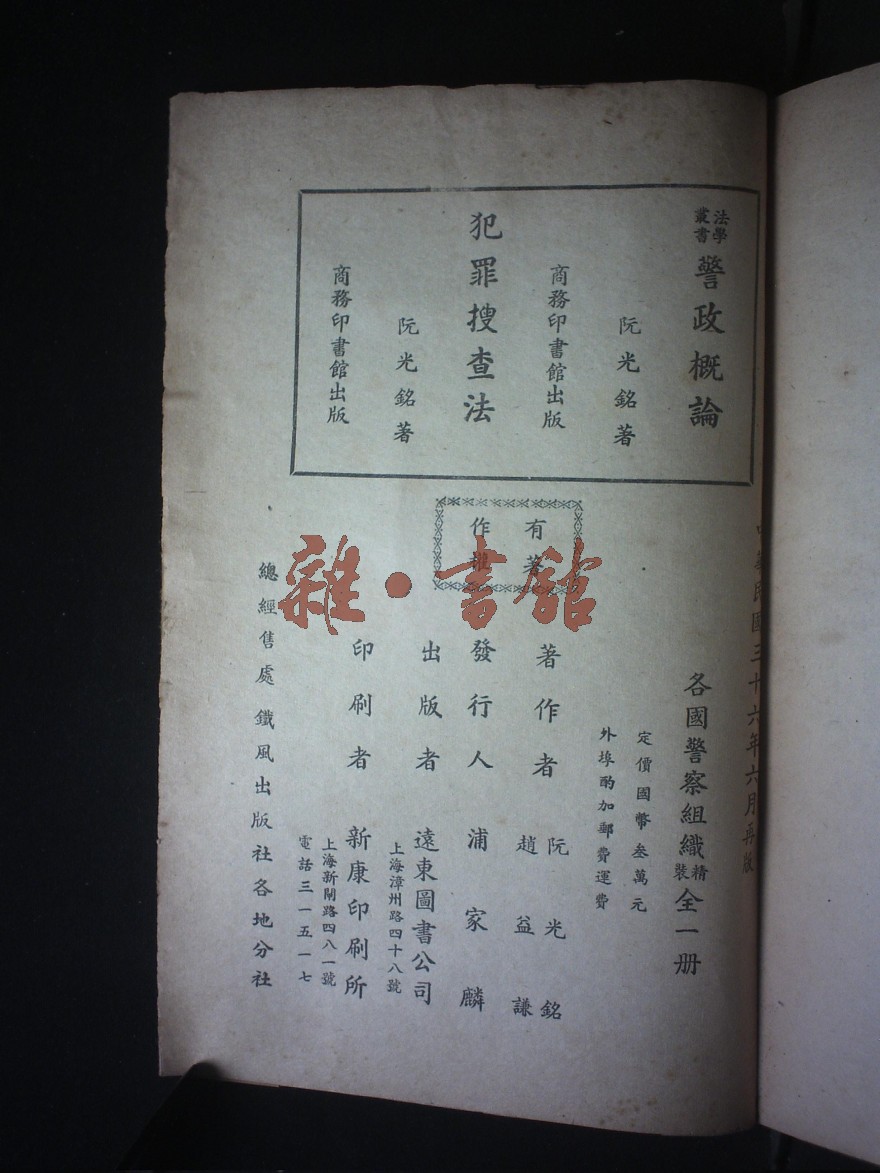 法學
叢書
警政概論
阮光銘著
商務印書館出版
犯罪搜查法
阮光銘著
商務印書館出版
有著
作權
中華民國三十六年六月再版
各國警察組織 精裝 全一册
定價國幣叁萬元
外埠酌加郵費運費
著作者 阮光銘
趙益謙
發行人 浦家麟
出版者 遠東圖書公司
上海漳州路四十八號
印刷者 新康印刷所
上海新閘路四八一號
電話三一五一七
總經售處鐵風出版社各地分社
雜·書館